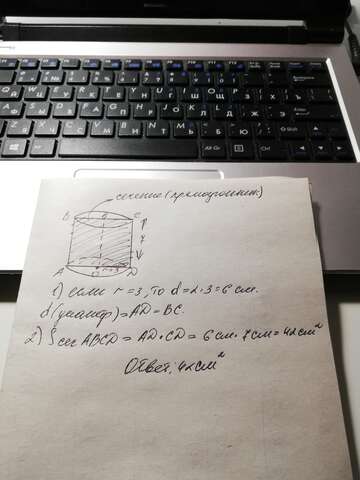 сечение (прямоугольник)
B O C
7
A O r=3 D
1) если r=3, то d=2·3=6 см.
d(диаметр)=AD=BC.
2) Sсеч ABCD = AD·CD = 6 см · 7 см = 42 см²
Ответ: 42 см²